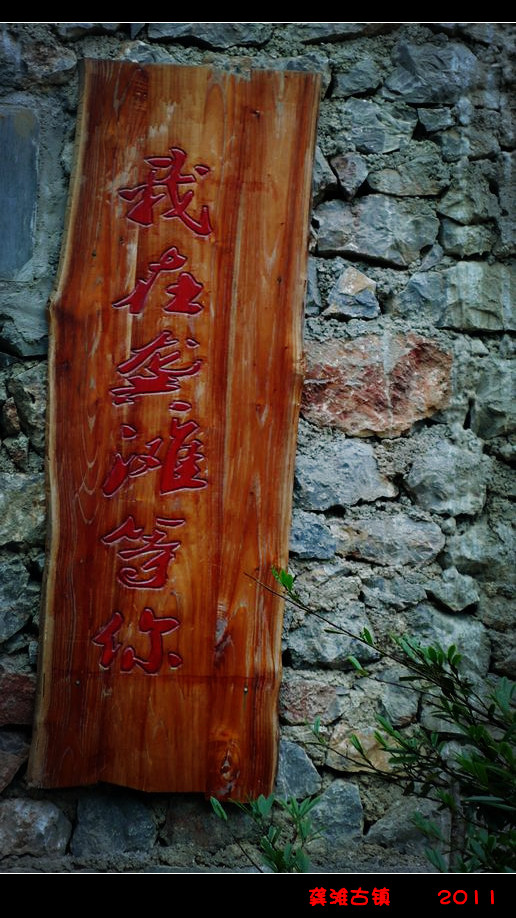 我在龚滩等你
龚滩古镇 2011